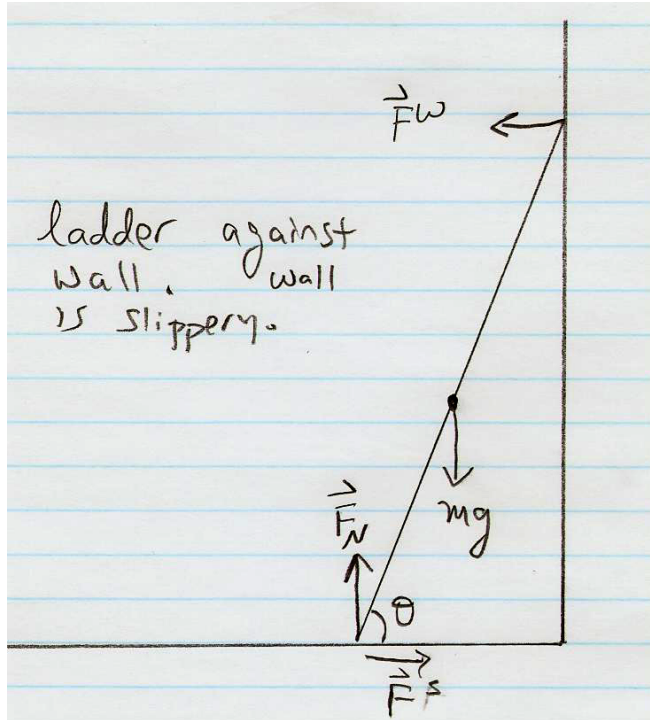 F^W
ladder against
wall. wall
is slippery.
F_N
mg
θ
F^s